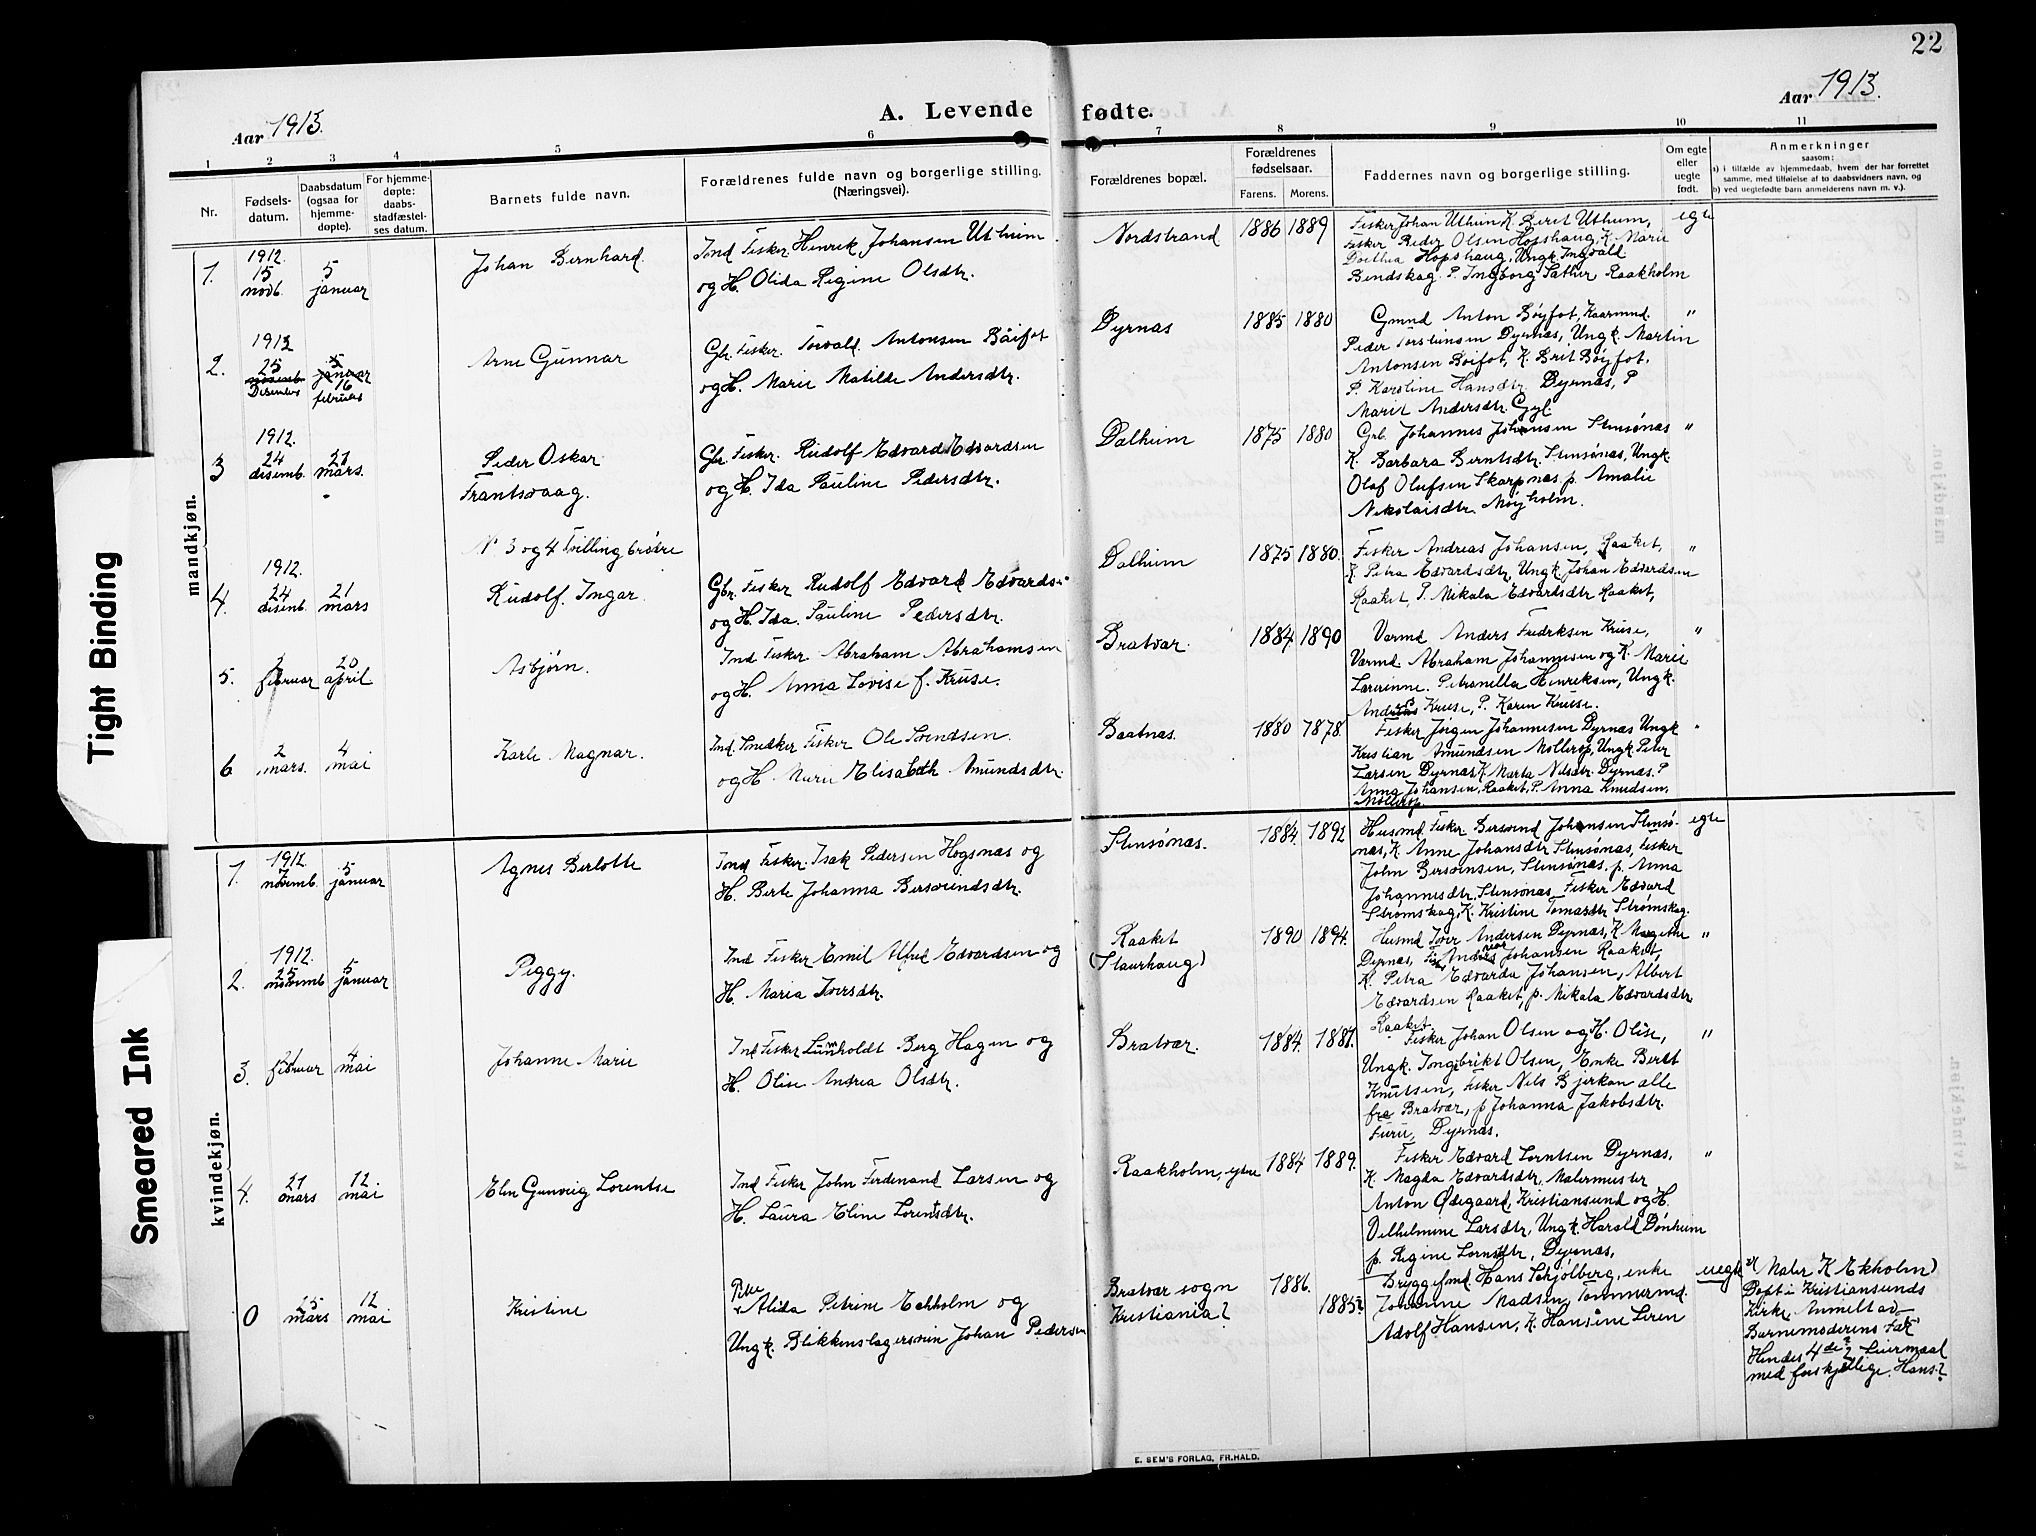 22
Aar 1913.
A. Levende fødte.
Aar 1913.
1 2 3 4 5 6 7 8 9 10 11
Nr.
Fødsels-
datum.
Daabsdatum
(ogsaa for
hjemme-
døpte).
For hjemme-
døpte:
daabs-
stadfæstel-
ses datum.
Barnets fulde navn.
Forældrenes fulde navn og borgerlige stilling.
(Næringsvei).
Forældrenes bopæl.
Forældrenes
fødselsaar.
Farens. Morens.
Faddernes navn og borgerlige stilling.
Om egte
eller
uegte
født.
Anmerkninger
saasom:
a) i tilfælde av hjemmedaab, hvem der har forrettet
samme, med tilføielse af to daabsvidners navn, og
b) ved uegtefødte barn anmelderens navn m. v.).
mandkjøn.
1.
1912.
15
novb.
5
januar
Johan Bernhard.
Ind Fisker Henrik Johansen Utheim
og H. Olida Regine Olsdtr.
Nordstrand
1886 1889
Fisker Johan Utheim K. Berit Utheim,
Fisker Peder Olsen Hopshaug, K. Marie
Dorthea Hopshaug, Ungk. Ingvald
Bendskag P. Ingborg Sather, Raakholm
egte
2.
1912
25
novemb.
Desember
5
januar
16
februar
Arne Gunnar
Gbr. Fisker. Torvald Antonsen Bøifot
og H. Marie Matilde Andersdtr.
Dyrnas
1885 1880
Gmnd Anton Bøyfot, Kaarmnd.
Peder Torsteinsen Dyrnas, Ungk. Martin
Antonsen Bøifot, K. Brit Bøyfot,
P. Karoline Hansdtr. Dyrnas, P
Marit Andersdtr. Gyl.
"
3
1912.
24
disemb.
21
mars.
Peder Oskar
Frantsvaag.
Gbr. Fisker. Rudolf Edvard Edvardsen
og H. Ida Pauline Pedersdtr.
Dalheim
1875 1880
Grb. Johannes Johansen Stensønas
K. Barbara Berntsdtr. Stensønas, Ungk.
Olaf Olufsen Skarpnas p. Amalie
Nikolaisdtr. Møyholm.
"
N. 3 og 4 Tvillingbrødre
4.
1912.
24
disemb.
21
mars
Rudolf. Ingar.
Gbr. Fisker Rudolf Edvard Edvardsen
og H. Ida. Pauline Pedersdtr.
Dalheim
1875 1880.
Fisker Andreas Johansen, Raaket,
K. Petra Edvardsdtr, Ungk Johan Edvardsen
Raaket, P. Nikala Edvardsdtr Raaket,
"
5.
1
februar
20
april
Asbjørn.
Ind Fisker Abraham Abrahamsen
og H. Anna Lovise f. Kruse.
Bratvar.
1884 1890
Varmd Anders Fredriksen Kruse,
Varmd Abraham Johannesen og K. Marie
Lærerinne. Petronella Henriksen, Ungk.
Andreas Kruse, P. Karen Kruse.
"
6
2
mars.
4
mai
Karle Magnar.
Ind. Snedker Fisker Ole Svendsen.
og H. Marie Elisabeth Amundsdtr.
Baatnas.
1880 1878.
Fisker Jørgen Johannesen Dyrnas Ungk
Kristian Amundsen Mollerop, Ungk Peter
Larsen Dyrnas K. Marta Nilsdtr. Dyrnas. P
Anna Johansen, Raaket, P. Anna Knudsen,
Mollerop.
"
kvindekjøn.
1.
1912
7
novemb.
5
januar
Agnes Berlotte
Ind Fisker. Isak Pedersen Hogsnas og
H. Berte Johanna Bersvendsdtr.
Stensønas.
1884. 1892
Husmd Fisker Bersvend Johansen Stensø-
nas, K. Anne Johansdtr Stensønas, Fisker
John Bersvensen, Stensønas. p. Anna
Johannesdtr, Stensønas Fisker Edvard
Strømskag, K. Kristine Tomasdtr Strømskag.
egte
2.
1912.
25
novemb
5
januar
Peggy.
Ind Fisker Emil Alfred Edvardsen og
H. Maria Iversdtr.
Raaket
(Staurhaug)
1890 1894.
Husmd Iver Andersen Dyrnas, K Magrethe
Dyrnas, Fisker Andreas Johansen Raaket,
K. Petra Edvarda Johansen, Albert
Edvardsen Raaket, p. Nikala Edvardsdtr
Raaket.
"
3.
1
februar
4
mai
Johanne Marie
Ind Fisker Lumholdt Berg Hagen og
H. Olise Andrea Olsdtr.
Bratvar.
1884. 1881.
Fisker Johan Olsen og H. Olise,
Ungk. Ingebrikt Olsen, Enke Beret
Knutsen, Fisker Nils Bjerkan alle
fra Bratvar, p Johanna Jakobsdtr.
Furu, Dyrnas.
"
4.
21
mars
12
mai
Elen Gunveig Lorentse
Ind Fisker John Ferdinand Larsen og
H. Laura Eline Lorentsdtr.
Raakholm, ytre
1884 1889.
Fisker Edvard Lorntsen Dyrnas,
K. Magda Edvardsdtr, Malermester
Anton Ødegaard, Kristiansund og H.
Vilhelmine Larsdtr, Ungk. Harald Bønheim
p. Regine Lorntsdtr, Dyrnas,
"
0
25
mars
12
mai
Kristine
Pike
Alida Petrine Eckholm og
Ungk. Blikkenslagersvein Johan Pedersen
Bratvar sogn
Kristiania?
1886.
1885?
Bryggefmd. Hans Schjølberg, enke
Johanne Madsen, Tømmermd.
Adolf Hansen, K. Hansine Leren
uegte
Maler K Ekholm)
Døpt i Kristiansunds
Kirke. Anmelt av
Barnemoderens Far
Hendes 4de? Leiermaal
med forskjellige. Hans?
E. SEM'S FORLAG, FR.HALD.
Tight Binding
Smeared Ink